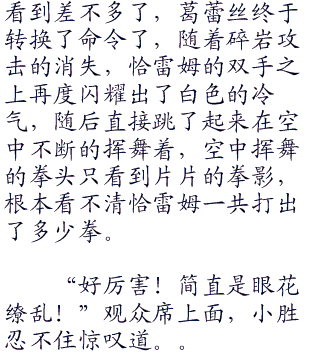 看到差不多了，葛蕾丝终于
转换了命令了，随着碎岩攻
击的消失，恰雷姆的双手之
上再度闪耀出了白色的冷
气，随后直接跳了起来在空
中不断的挥舞着，空中挥舞
的拳头只看到片片的拳影，
根本看不清恰雷姆一共打出
了多少拳。
“好厉害！简直是眼花
缭乱！”观众席上面，小胜
忍不住惊叹道。。